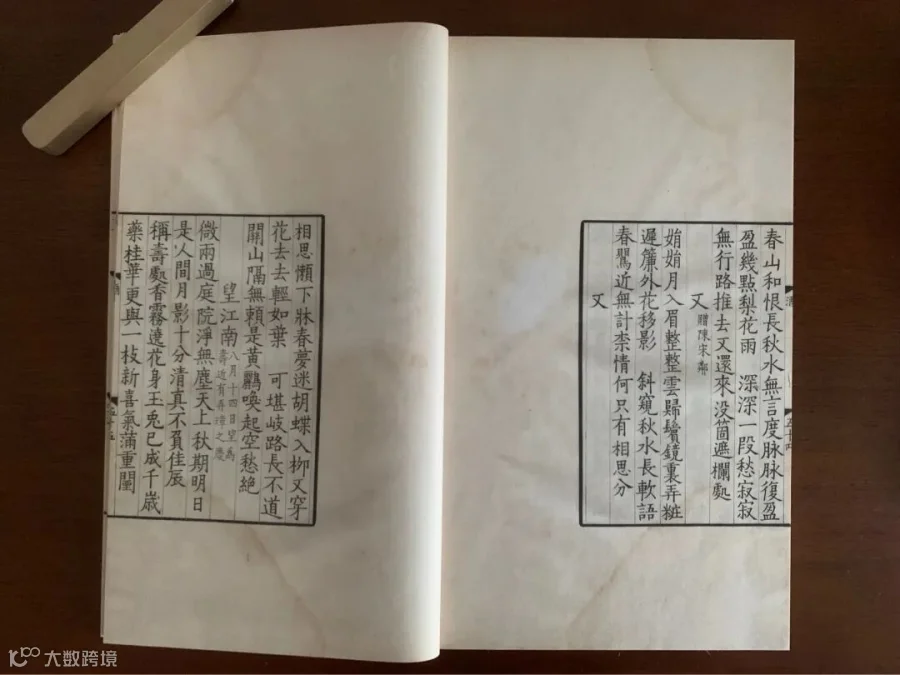 春山和恨長秋水無言度脉脉復盈
盈幾點梨花雨　深深一段愁寂寂
無行路推去又還來没箇遮欄處
又贈陳宋鄰
娟娟月入眉整整雲歸鬢鏡裏弄粧
遲簾外花移影　斜窺秋水長軟語
春鸎近無計柰情何只有相思分
又
五十四
相思懶下牀春夢迷胡蝶入栁又穿
花去去輕如葉　可堪岐路長不道
關山隔無賴是黃鸝喚起空愁絶
望江南八月十四日望爲
壽近有弄璋之慶
微雨過庭院淨無塵天上秋期明日
是人間月影十分清真不負佳辰
稱壽處香霧遶花身玉兎已成千歲
藥桂華更與一枝新喜氣滿重闉
五十五
大数跨境